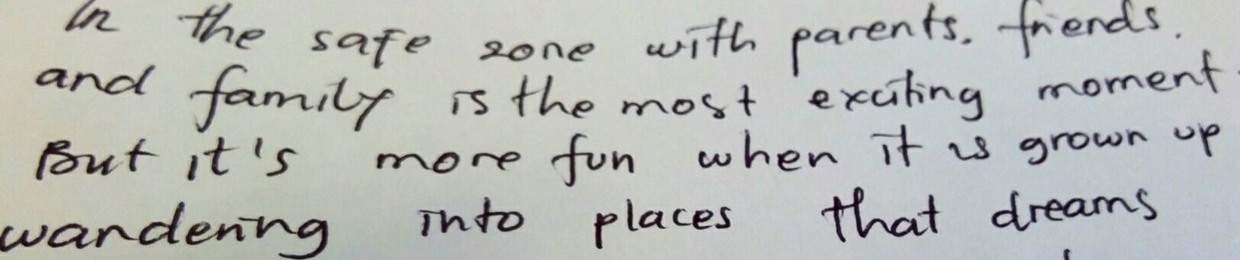 In the safe zone with parents. friends.
and family is the most exciting moment.
But it's more fun when it is grown up
wandering into places that dreams